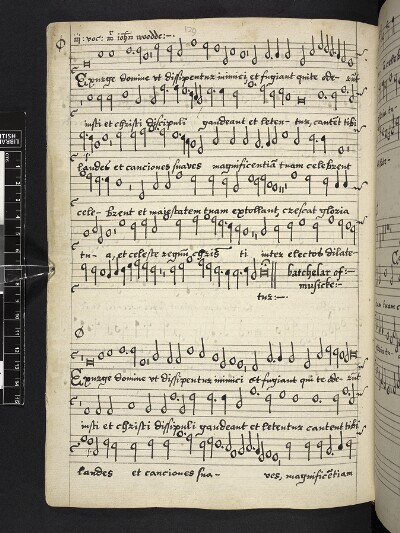 iij : voc : mr iohn woodde :~.
129
Exurge domine vt dissipentur inimici et fugiant qui te ode- runt
iusti et christi discipuli gaudeant et leten- tur, cantent tibi
laudes et canciones suaves magnificentiā tuam celebrent
cele- brent et maiestatem tuam extollant, crescat gloria
tu- a, et celeste regnū chris ti inter electos dilate
batchelar of :~
musicke :~
tur :~.
Exurge domine vt dissipentur inimici et fugiant qui te ode- runt
iusti et christi discipuli gaudeant et letentur cantent tibi
laudes et canciones sua- ves, magnificētiam